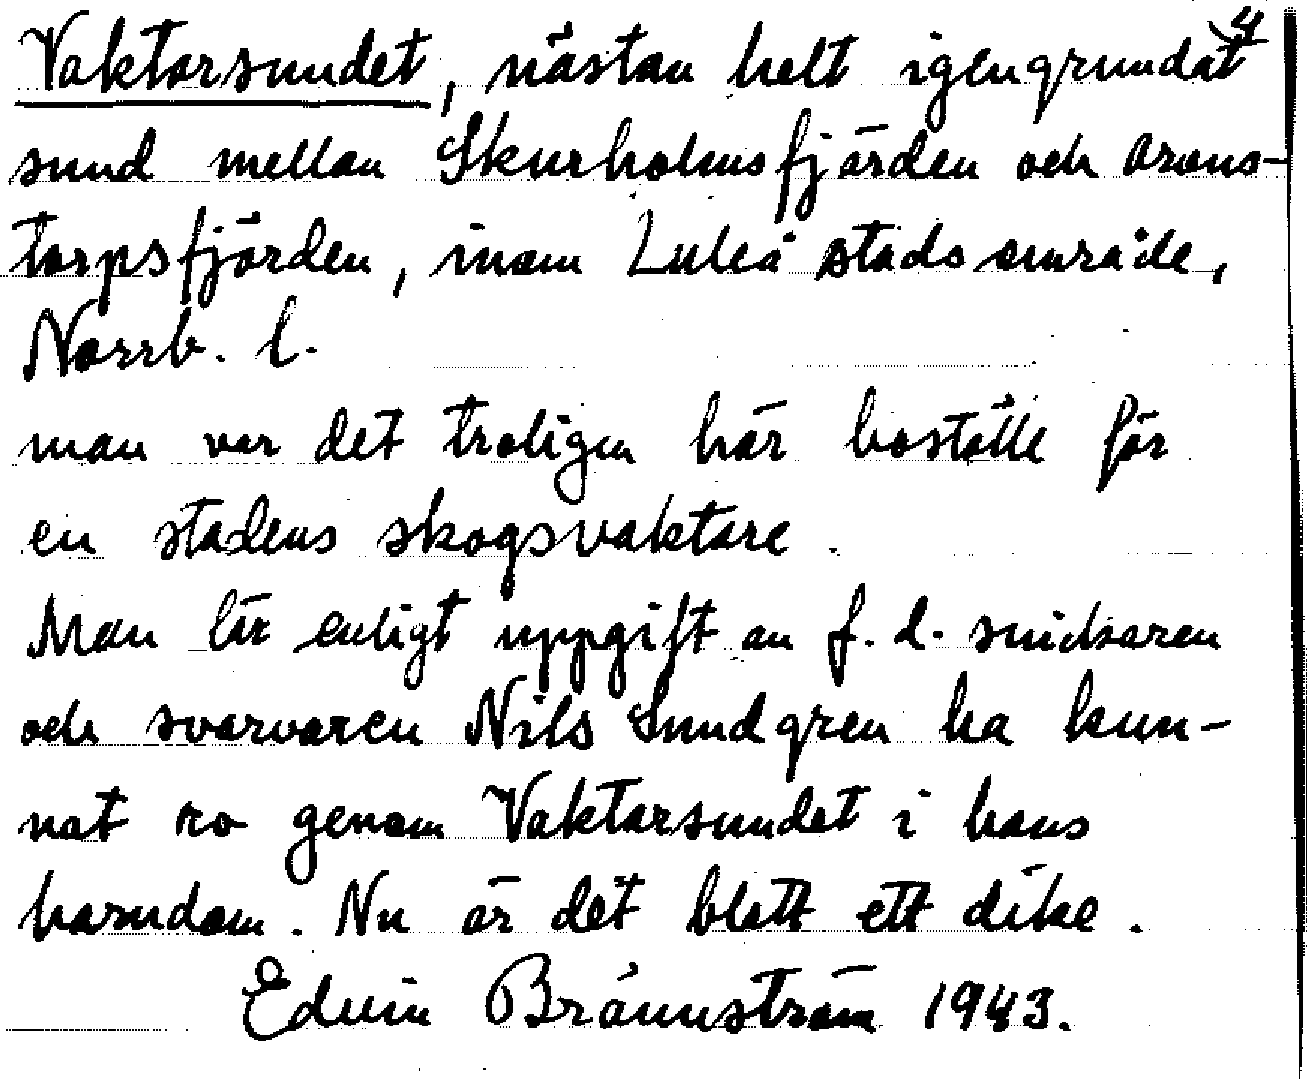 4
Vaktarsundet, nästan helt igengrundat
sund mellan Skurholmsfjärden och Arons-
torpsfjärden, inom Luleå stadsområde,
Norrb. l.
man var det troligen här boställe för
en stadens skogsvaktare.
Man lär enligt uppgift av f.d. snidaren
och svarvaren Nils Sundgren ha kun-
nat ro genom Vaktarsundet i hans
barndom. Nu är det blott ett dike.
Edvin Brännström 1943.